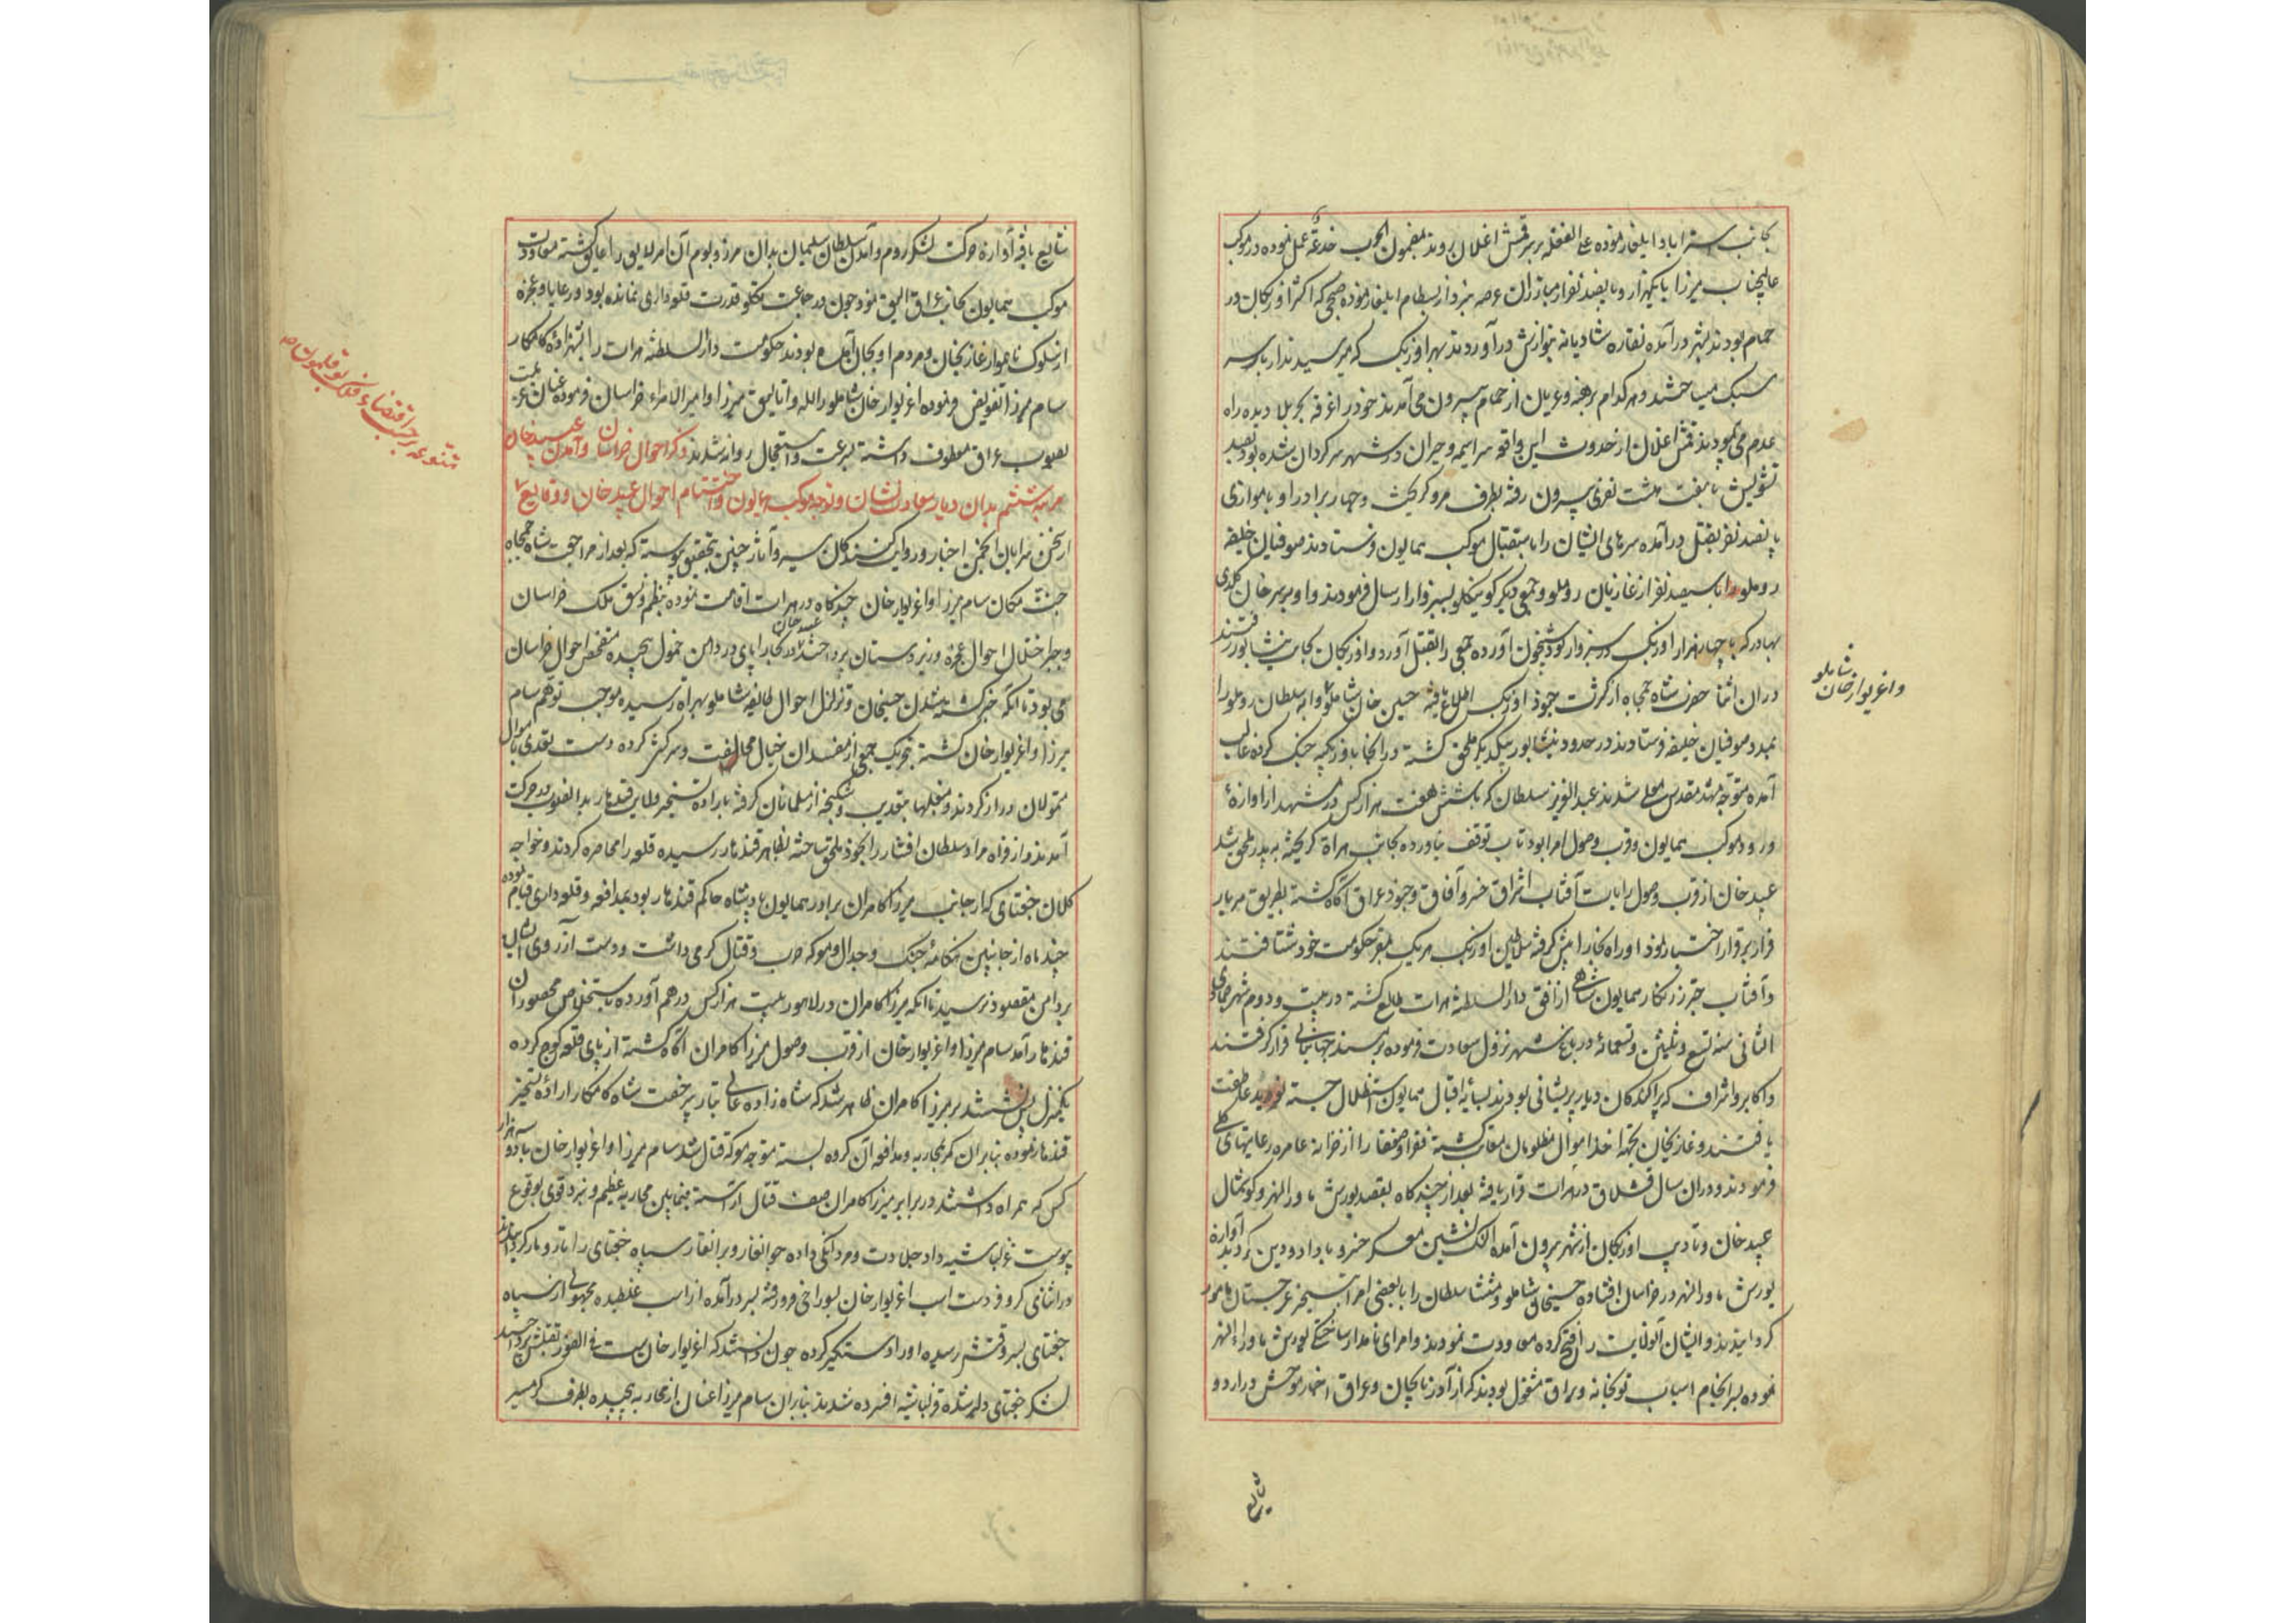 بجانب استراباد ایلغار نموده علی الغفله بر سر قمش اغلان روند بمضمون الحرب خدعة عمل نموده در موکب
عالیجناب میرزا با یکهزار و پانصد نفر از مبارزان عرصه نبرد از بسطام ایلغار نموده صبحی که اکثر اوزبکان در
حمام بودند بشهر درآمده نقاره شادیانه بنوازش درآوردند بهر اوزبک که میرسیدند از بار سر
سبک میساختند و هر کدام برهنه و عریان از حمام بیرون می آمدند خود را غرقه بحر بلا دیده راه
عدم می پیمودند قمش اغلان از حدوث این واقعه سراسیمه و حیران در شهر سرکردان شده بود بصد
تشویش با هفت هشت نفری بیرون رفته بطرف مرو کریخت و چهار برادر او با موازی
پانصد نفر بقتل درآمده سرهای ایشان را باستقبال موکب همایون فرستادند صوفیان خلیفه
روملو را با سیصد نفر از غازیان روملو و جمعی دیگر کومکی بسبزوار ارسال فرمودند و او بر سر خان کلدی
بهادر که با چهار هزار اوزبک در سبزوار بود شبیخون آورده جمعی را بقتل آورد و اوزبکان بجانب نیشابور رفتند
در آن اثنا حضرت شاه جمجاه از کثرت جنود اوزبک اطلاع یافته حسین خان شاملو و ابه سلطان روملو را
بمدد صوفیان خلیفه فرستادند در حدود نیشابور بیکدیگر ملحق گشته در آنجا با اوزبکیه جنک کرده غالب
آمده متوجه مشهد مقدس معلی شدند عبدالعزیز سلطان که با شش هفت هزار کس در مشهد از آوازهٔ
ورود موکب همایون و قرب وصول امرا بود تاب توقف نیاورده بجانب هراة کریخته به پدر ملحق شد
عبید خان از قرب وصول رایات آفتاب اشراق خسرو آفاق و جنود عراق آگاه گشته بطریق هر بار
فرار بر قرار اختیار نمود و راه بخارا پیش گرفته سلاطین اوزبک هر یک بمقر حکومت خود شتافتند
و آفتاب چتر زرنگار همایون شاهی از افق دارالسلطنه هرات طالع گشته در بیست و دوم شهر جمادی
الثانی سنه تسع و ثلثین و تسعمائه در باغ شهر نزول سعادت فرموده بر مسند جهانبانی قرار گرفتند
و اکابر و اشراف که پراکندگان دیار پریشانی بودند بسایه اقبال همایون استظلال جسته نوید عاطفت
یافتند و غازیخان بجهة اخذ اموال مظلومان معاتب گشته فقرا و ضعفا را از خزانه عامره رعایتهای کلی
فرمودند و در آن سال قشلاق در هرات قرار یافته بعد از چند گاه بقصد یورش ماورالنهر و کوشمال
عبید خان و تادیب اوزبکان از شهر بیرون آمده النک نشین معسکر خسرو با داد و دین کردید آوازه
یورش ماورالنهر در خراسان افتاده حسینخان شاملو و منتشا سلطان را با بعضی امرا بتسخیر غرجستان مامور
کردانیدند و ایشان آنولایت را فتح کرده معاودت نمودند و امرای نامدار ساختگی یورش ماوراءالنهر
نموده بسرانجام اسباب توپخانه و یراق مشغول بودند که از آذربایجان و عراق اخبار موحش در اردو
شایع
و اغزیوار خان شاملو
شایع یافته آوازه حرکت لشکر روم و آمدن سلطان سلیمان بدان مرز و بوم آن امر لایق را عایق گشته معاودت
موکب همایون بجانب عراق الیق نمود چون در جماعت تکلو قدرت قلعه داری نمانده بود و رعایا و عجزه
از سلوک ناهموار غازیخان و مردم او بجان آمده بودند حکومت دارالسلطنه هرات را بشهزاده کامکار
سام میرزا تفویض فرموده اغزیوار خان شاملو را لله و اتالیق میرزا و امیر الامراء خراسان فرموده عنان عزیمت
بصوب عراق معطوف داشته بسرعت و استعجال روانه شدند ذکر احوال خراسان و آمدن عبید خان
مرتبه ششم بدان دیار سعادت نشان و توجه موکب همایون و اختتام احوال عبید خان و وقایع
متنوعه بر حسب اقتضاء فلک بوقلمون شد
از سخن سرایان انجمن اخبار و روایت کنندکان سیر و آثار چنین بتحقیق پیوسته که بعد از مراجعت شاه جمجاه
جنت مکان سام میرزا و اغزیوار خان چند کاه در هرات اقامت نموده بنظم و نسق ملک خراسان
و جبر اختلال احوال عجزه و زیردستان پرداختند عبید خان در بخارا پای در دامن خمول پیچیده متفحص احوال خراسان
می بود تا آنکه خبر کشته شدن حسینخان و تزلزل احوال طایفه شاملو بهراة رسیده موجب توهم سام
میرزا و اغزیوار خان کشته بتحریک جمعی از مفسدان خیال مخالفت و سرکشی کرده دست تعدی باموال
متمولان دراز کردند و مبلغها بتعدیب و شکنجه از مسلمانان گرفته باراده تسخیر ولایت قندهار بدانصوب در حرکت
آمدند و از فراه مراد سلطان افشار را بخود ملحق ساخته بظاهر قندهار رسیده قلعه را محاصره کردند و خواجه
کلان جغتای که از جانب میرزا کامران برادر همایون پادشاه حاکم قندهار بود بمدافعه و قلعه داری قیام نموده
چند ماه از جانبین هنکامه جنک و جدال و معرکه حرب و قتال گرمی داشت و دست آرزوی ایشان
بر دامن مقصود نرسید تا آنکه میرزا کامران در لاهور بیست هزار کس در هم آورده باستخلاص محصوران
قندهار آمد سام میرزا و اغزیوار خان از قرب وصول میرزا کامران آگاه گشته از پای قلعه کوچ کرده
یکمنزل پس نشستند بر میرزا کامران ظاهر شد که شاه زاده عالی تبار بی رخصت شاه کامکار اراده تسخیر
قندهار نموده بنابر آن کمر بمحاربه و مدافعه آن کروه بسته متوجه معرکه قتال شد سام میرزا و اغزیوار خان با دو هزار
کس که همراه داشتند در برابر میرزا کامران صف قتال آراسته میانه ایشان محاربه عظیم و نبرد قوی بوقوع
پیوست قزلباشیه داد جلادت و مردانگی داده جوانغار و برانغار سپاه جغتای را تار و مار کردانیدند
در اثنای کر و فر دست اسب اغزیوار خان بسوراخی فرو رفته بسر درآمده از اسب غلطیده مجهولی از سپاه
جغتای بسر وقتش رسیده او را دستگیر کرده چون دانستند که اغزیوار خان است فی الفور بقتلش پرداختند
لشکر جغتای دلیر شده قزلباشیه افسرده شدند بنابر آن سام میرزا عنان از محاربه پیچیده بطرف گرمسیر